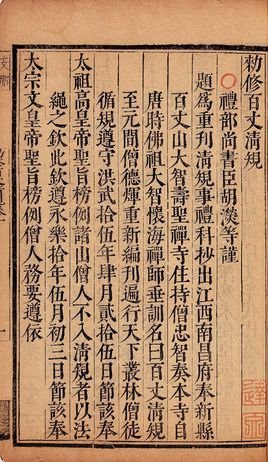 勑修百丈清規
禮部尚書臣胡濙等謹
題爲重刊清規事禮科抄出江西南昌府奉新縣
百丈山大智壽聖禪寺住持僧忠智奏本寺自
唐時佛祖大智懷海禪師垂訓名曰百丈清規
至元間僧德煇重新編刊遍行天下叢林僧徒
循規遵守洪武拾伍年肆月貳拾伍日節該奉
太祖高皇帝聖旨榜例諸山僧人不入清規者以法
繩之欽此欽遵永樂拾年伍月初三日節該奉
太宗文皇帝聖旨榜例僧人務要遵依